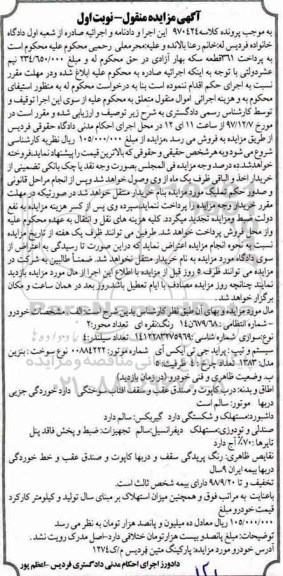 آگهی مزایده منقول- نوبت اول
به موجب پرونده کلاسه ۹۷۰۴۲۴ این اجرا و دادنامه و اجرائیه صادره از شعبه اول دادگاه
خانواده فردیس له:خانم رعنا بالانده و علیه:محرمعلی رحیمی محکوم علیه محکوم است
به پرداخت ۳۶۱قطعه سکه بهار آزادی در حق محکوم له و مبلغ ۲۳۴/۶۵۰/۰۰۰ نیم
عشردولتی با توجه به اینکه اجرائیه صادره به محکوم علیه ابلاغ شده ودر مهلت مقرر
نسبت به اجرای حکم اقدام ننموده است بنا به درخواست محکوم له به منظور استیفای
محکوم به و هزینه اجرائی اموال منقول متعلق به محکوم علیه از سوی این اجرا توقیف و
توسط کارشناس رسمی دادگستری به شرح زیر توصیف و ارزیابی شده و مقرر است در
مورخ ۹۷/۱۲/۷ از ساعت ۱۱ الی ۱۲ در محل اجرای احکام مدنی دادگاه حقوقی فردیس
از طریق مزایده به فروش می رسد .مزایده از مبلغ ۱۰۵/۰۰۰/۰۰۰ ریال نظریه کارشناسی
شروع می شود و به هر شخص حقیقی و حقوقی که بالاترین قیمت را پیشنهاد نماید،فروخته
خواهدشد.ده درصد وجه مزایده فی المجلس بصورت وجه نقد یا چک بانکی تضمینی از
خریدار اخذ و الباقی ظرف یک ماه از وی وصول خواهد شد و پس از انجام مراحل قانونی
و صدور حکم تملیک مورد مزایده بنام خریدار منتقل خواهد شد.در صورتیکه در مهلت
مقرر خریدار وجه مزایده را پرداخت ننماید،سپرده وی پس از کسر هزینه مزایده به نفع
دولت ضبط و مزایده تجدید میگردد. کلیه هزینه های نقل و انتقال به عهده محکوم علیه
واز محل فروش پرداخت خواهد شد. طرفین می توانند ظرف یک هفته از تاریخ مزایده
نسبت به نحوه انجام مزایده اعتراض نماید که در این صورت تا رسیدگی به اعتراض از
سوی دادگاه مورد مزایده به نام خریدار منتقل نخواهد شد. ضمناً طالبین به شرکت در
مزایده می توانند ظرف ۵ روز قبل از مزایده با اطلاع این اجرا از مال مورد مزایده بازدید
نمایند چنانچه روز مزایده مصادف با ایام تعطیل باشد،روز بعد در همان ساعت و مکان
برگزار خواهد شد.
مال مورد مزایده و بهای آن طبق نظر کارشناس بدین شرح است: الف- مشخصات خودرو
-شماره انتظامی: ۶۸-۶۷۹ن۱۴ رنگ:نقره ای تعداد محور:۲
نوع:سواری شماره شاسی: ۱۴۱۲۲۸۳۴۷۵۹۶۹ تعداد سیلندر:۴
سیستم و تیپ: پراید جی تی ایکس آی شماره موتور: ۰۰۸۸۴۲۲۲ نوع سوخت: بنزین
مدل: ۱۳۸۳ تعداد چرخ: ۴ ظرفیت: ۵
ب-وضعیت ظاهری و فنی خودرو (در زمان بازدید)
اطاق و بدنه: درب کاپوت و صندق عقب و سقف آفتاب سوختگی دارد-خوردگی جزیی
دربها موتور: سالم است
داشبورد:مستهلک و شکستگی دارد گیربکس: سالم دارد
صندلی و تودوزی:مستهلک دیفرانسیل:سالم تجهیزات: ضبط و پخش فاقد پنل
تایرها: ۷۰٪ آج دارد
نقایص ظاهری: رنگ پریدگی سقف و دربها کاپوت و صندوق عقب و خط خوردگی
دربها بیمه ایران ۹سال
تخفیف و تا ۹۸/۹/۲۰ دارای بیمه شخص ثالث است.
باعنایت به مراتب فوق و همچنین میزان استهلاک بر مبنای سال تولید و کیلومتر کارکرد
قیمت خودرو مبلغ
۱۰۵/۰۰۰/۰۰۰ ریال معادل ده میلیون و پانصد هزار تومان به نظر می رسد
توضیحات: مبلغ پانصدو بیست هزارتومان خلافی دارد-اصل مدرک رویت نشد .
آدرس خودرو مورد مزایده: پارکینگ متین فردیس م/الف ۱۲۷۴
دادورز اجرای احکام مدنی دادگستری فردیس-اعظم پور